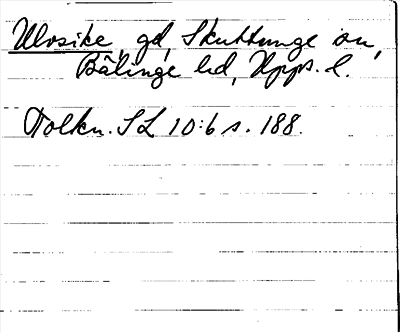 Ulvsike, gd, Skuttunge sn,
Bälinge hd, Upps. l.
Tolkn. SL 10:6 s. 188.